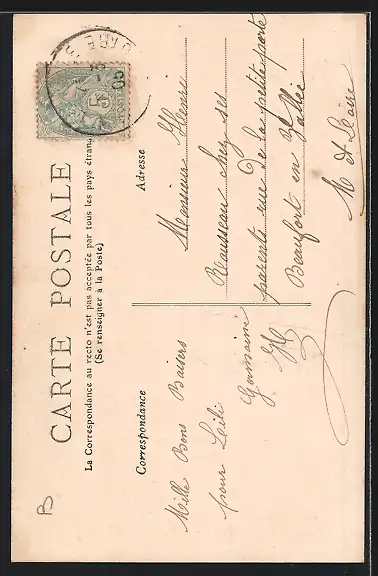 CARTE POSTALE
La Correspondance au recto n'est pas acceptée par tous les pays étran
(Se renseigner à la Poste)
Correspondance
Adresse
Mille Bons Baisers
pour Lili
Germaine
Monsieur Henri
Rousseau chez ses
parents rue de la petite porte
Beaufort en Vallée
M et Loire
5
05
B